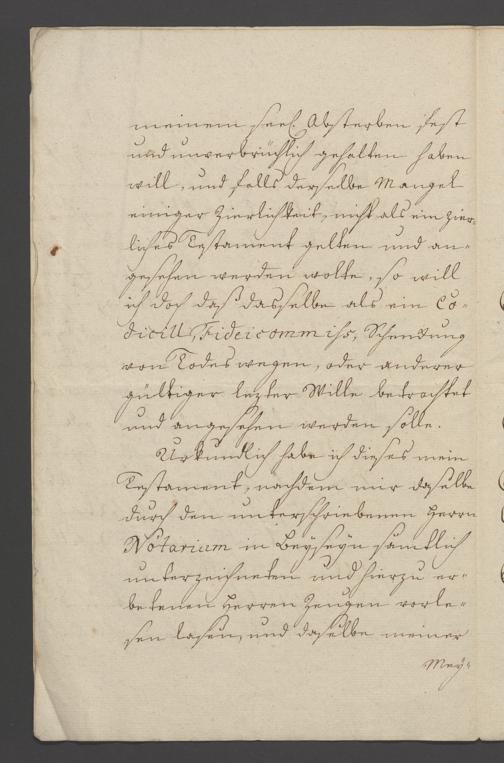 meinem seel. Absterben fest
und unverbrüchlich gehalten haben
will, und falls derselbe Mangel
einiger Zierlichkeit, nicht als ein zier-
liches Testament gelten und an-
gesehen werden wolte, so will
ich doch daß dasselbe als ein Co-
dicill, Fideicommiss, Schenkung
von Todes wegen, oder anderer
gültiger lezter Wille betrachtet
und angesehen werden solle.
Urkundlich habe ich dieses mein
Testament, nachdem mir daselbe
durch den unterschriebenen Herrn
Notarium in Beyseyn sämtlich
unterzeichneten und hierzu er-
betenen Herren Zeugen vorle-
sen lasen, und daselbe meiner
Mey-